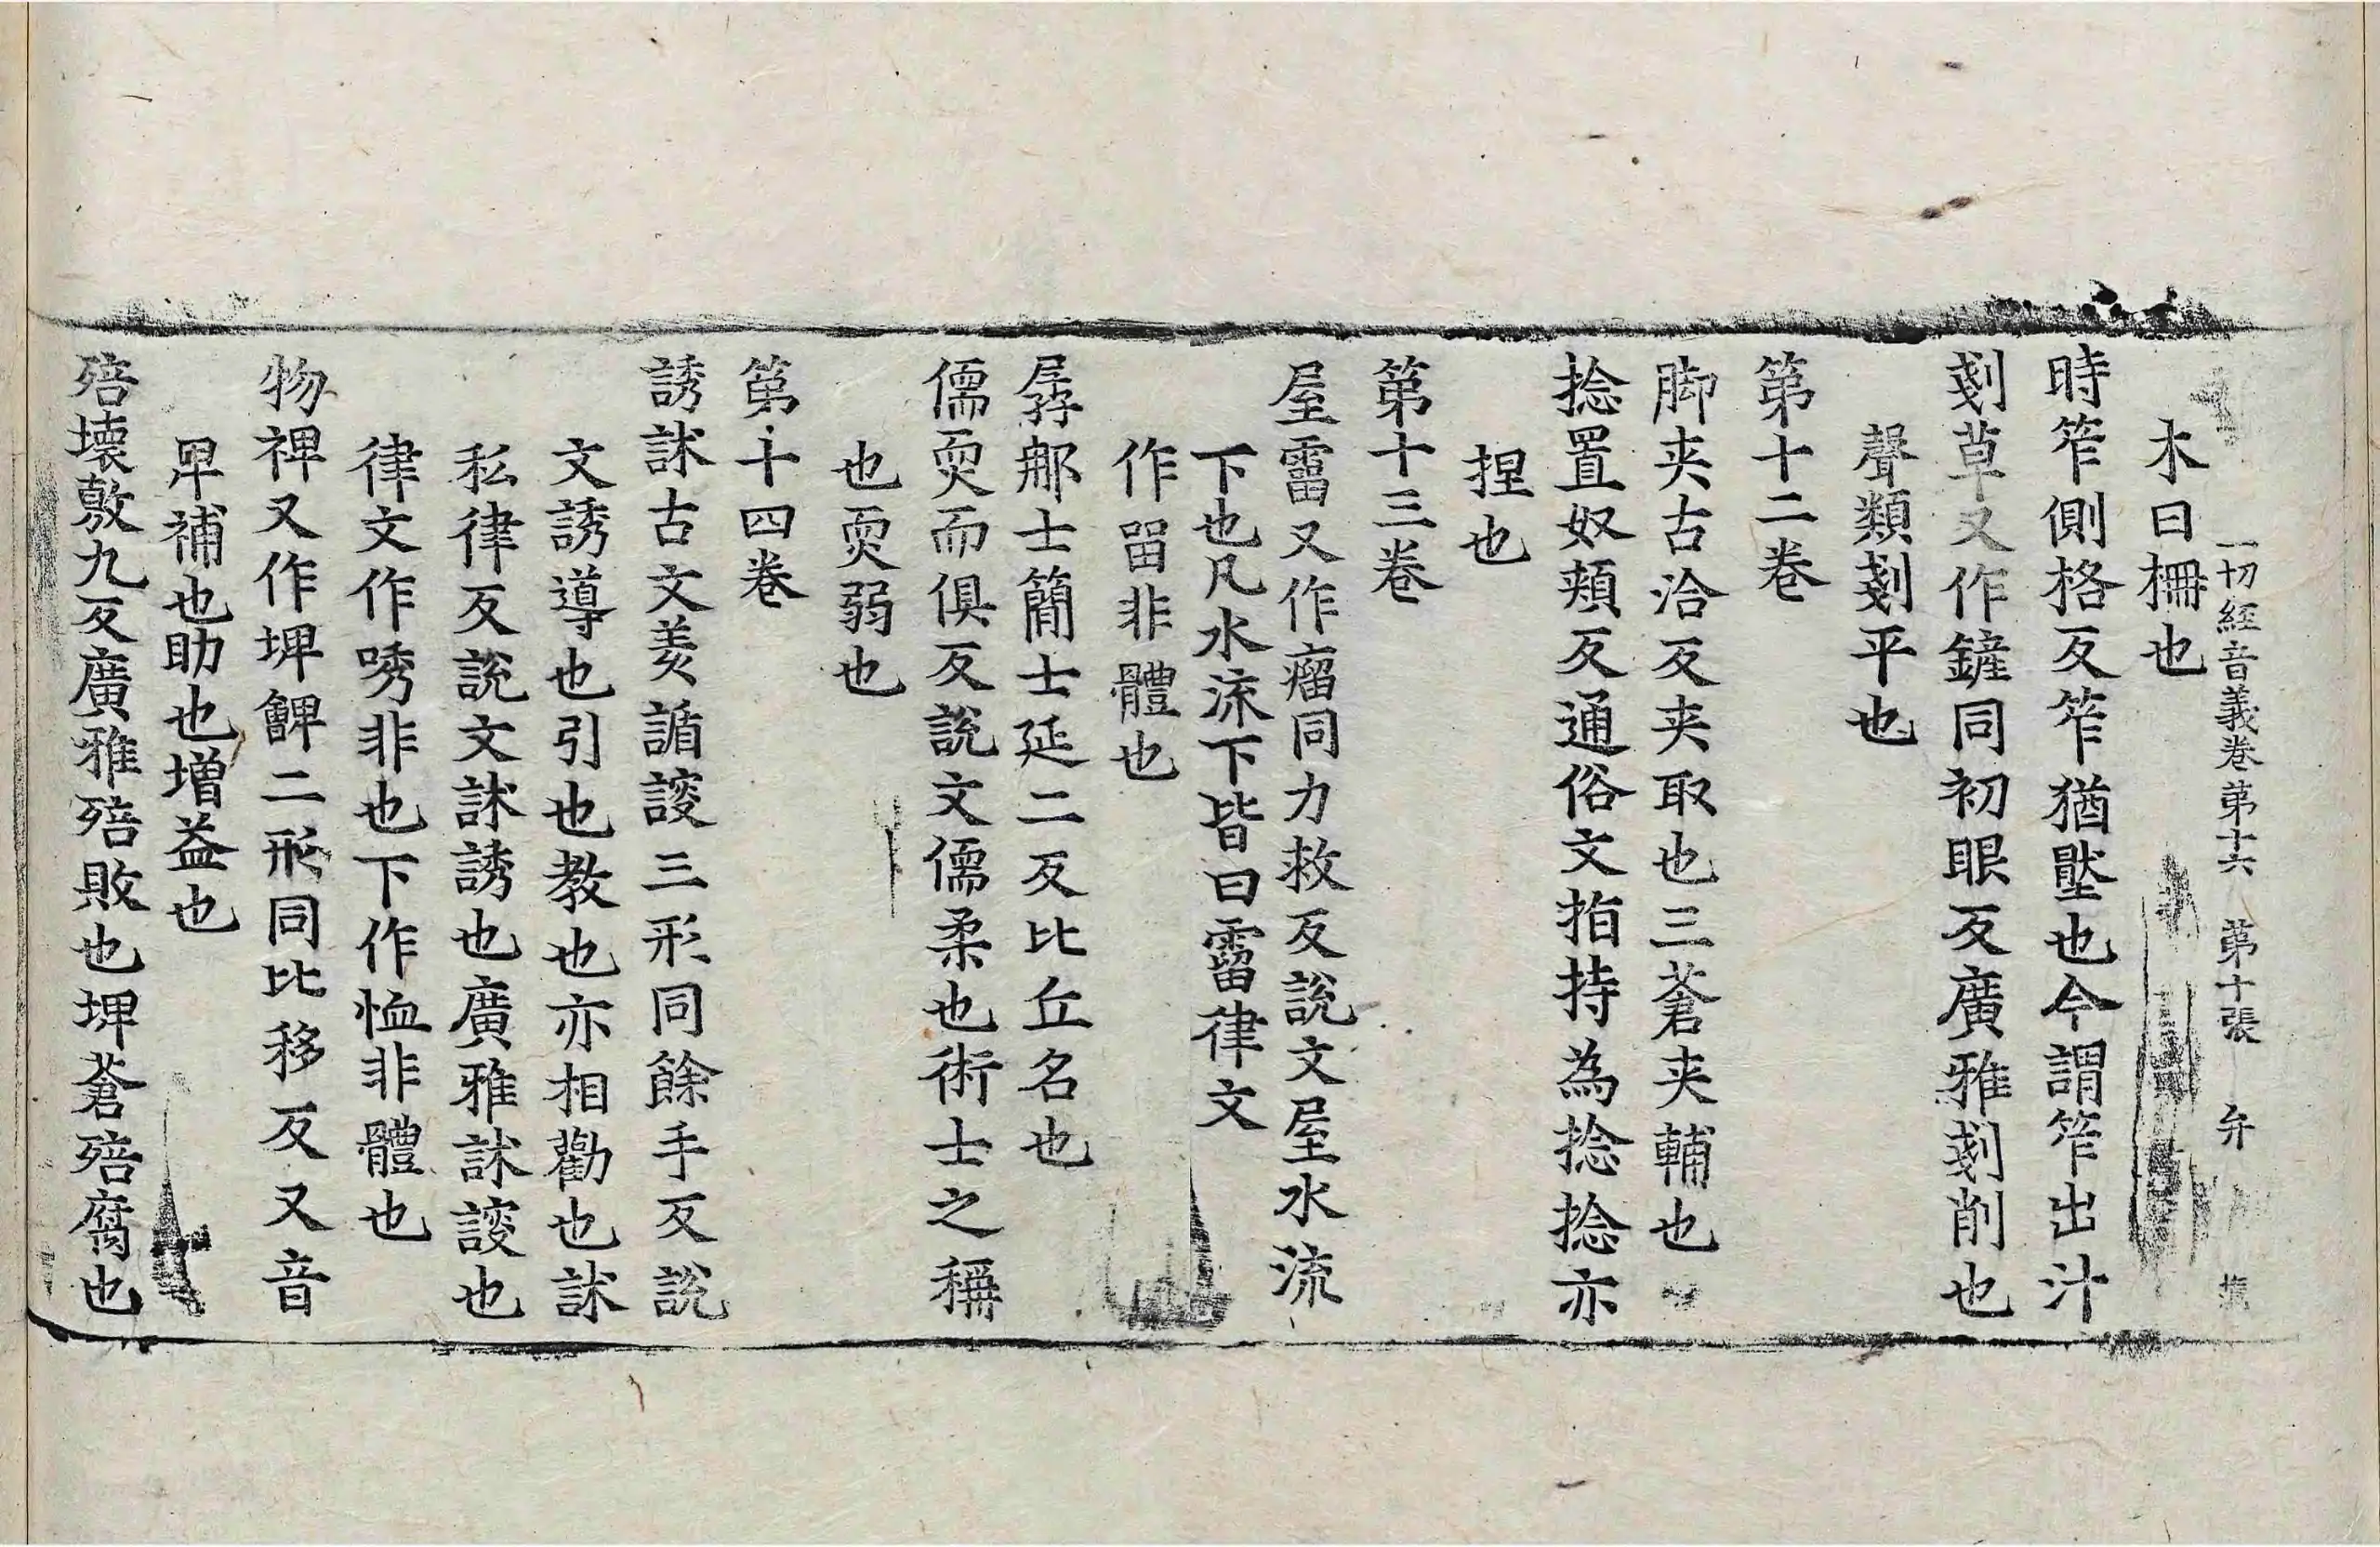 一切經音義卷第十六 第十張 弁
木曰柵也
時笮側格反笮猶壓也今謂笮出汁
剗草又作鏟同初眼反廣雅剗削也
聲類剗平也
第十二卷
脚夾古洽反夾取也三蒼夾輔也
捻置奴頰反通俗文指持為捻捻亦
捏也
第十三卷
屋霤又作廇同力救反說文屋水流
下也凡水流下皆曰霤律文
作留非體也
孱那士簡士延二反比丘名也
儒耎而俱反說文儒柔也術士之稱
也耎弱也
第十四卷
誘訹古文羑䛻䛢三形同餘手反說
文誘導也引也教也亦相勸也訹
私律反說文訹誘也廣雅訹䛢也
律文作唀非也下作恤非體也
物裨又作埤䚜二形同比移反又音
卑補也助也增益也
殕壞敷九反廣雅殕敗也埤蒼殕腐也